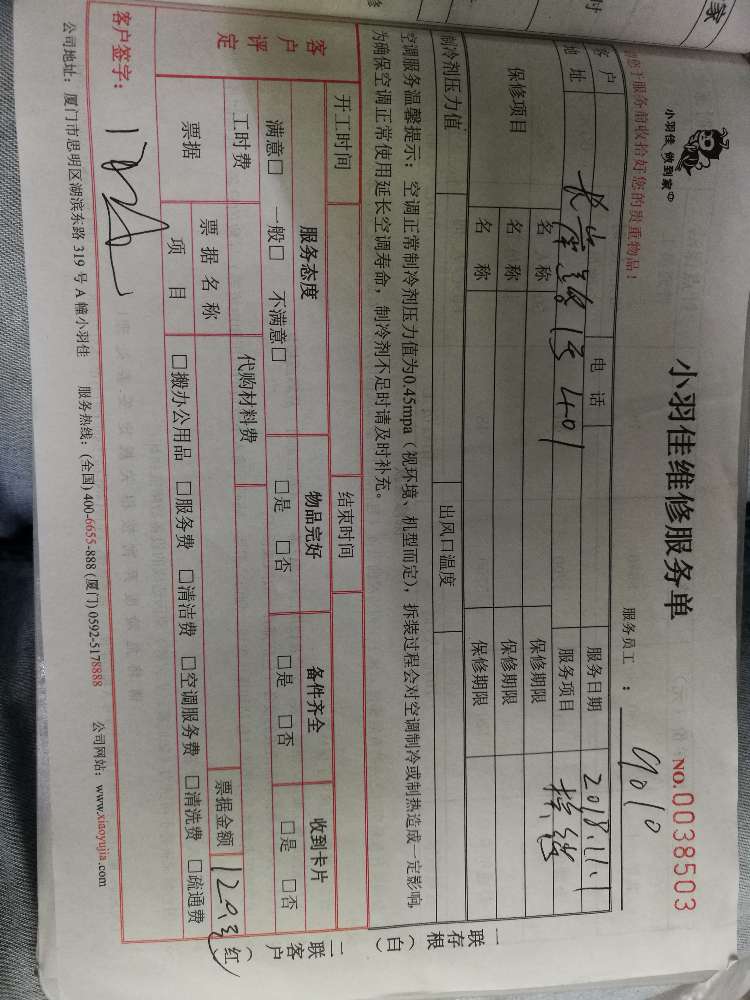 小羽佳 做到家
小羽佳维修服务单
NO.0038503
服务员工：9010
服务前收拾好您的贵重物品！
客户 电话 服务日期 2018.11.1
地址 401 服务项目
保修项目 名称 保修期限
名称 保修期限
名称 保修期限
制冷剂压力值 出风口温度
空调服务温馨提示：空调正常制冷剂压力值为0.45mpa（视环境、机型而定），拆装过程会对空调制冷或制热造成一定影响，
为确保空调正常使用延长空调寿命，制冷剂不足时请及时补充。
开工时间 结束时间
客户评定 服务态度 物品完好 备件齐全 收到卡片
满意□ 一般□ 不满意□ □是 □否 □是 □否 □是 □否
工时费 代购材料费
票据 票据名称 票据金额
项目 □搬办公用品 □服务费 □清洁费 □空调服务费 □清洗费 □疏通费
客户签字：
公司地址：厦门市思明区湖滨东路 319 号 A 幢小羽佳 服务热线：(全国) 400-6655-888 (厦门) 0592-5178888 公司网站：www.xiaoyujia.com
一联存根（白）
二联客户（红）